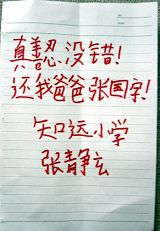 真善忍没错!
还我爸爸张国字!
知远小学
张静玄